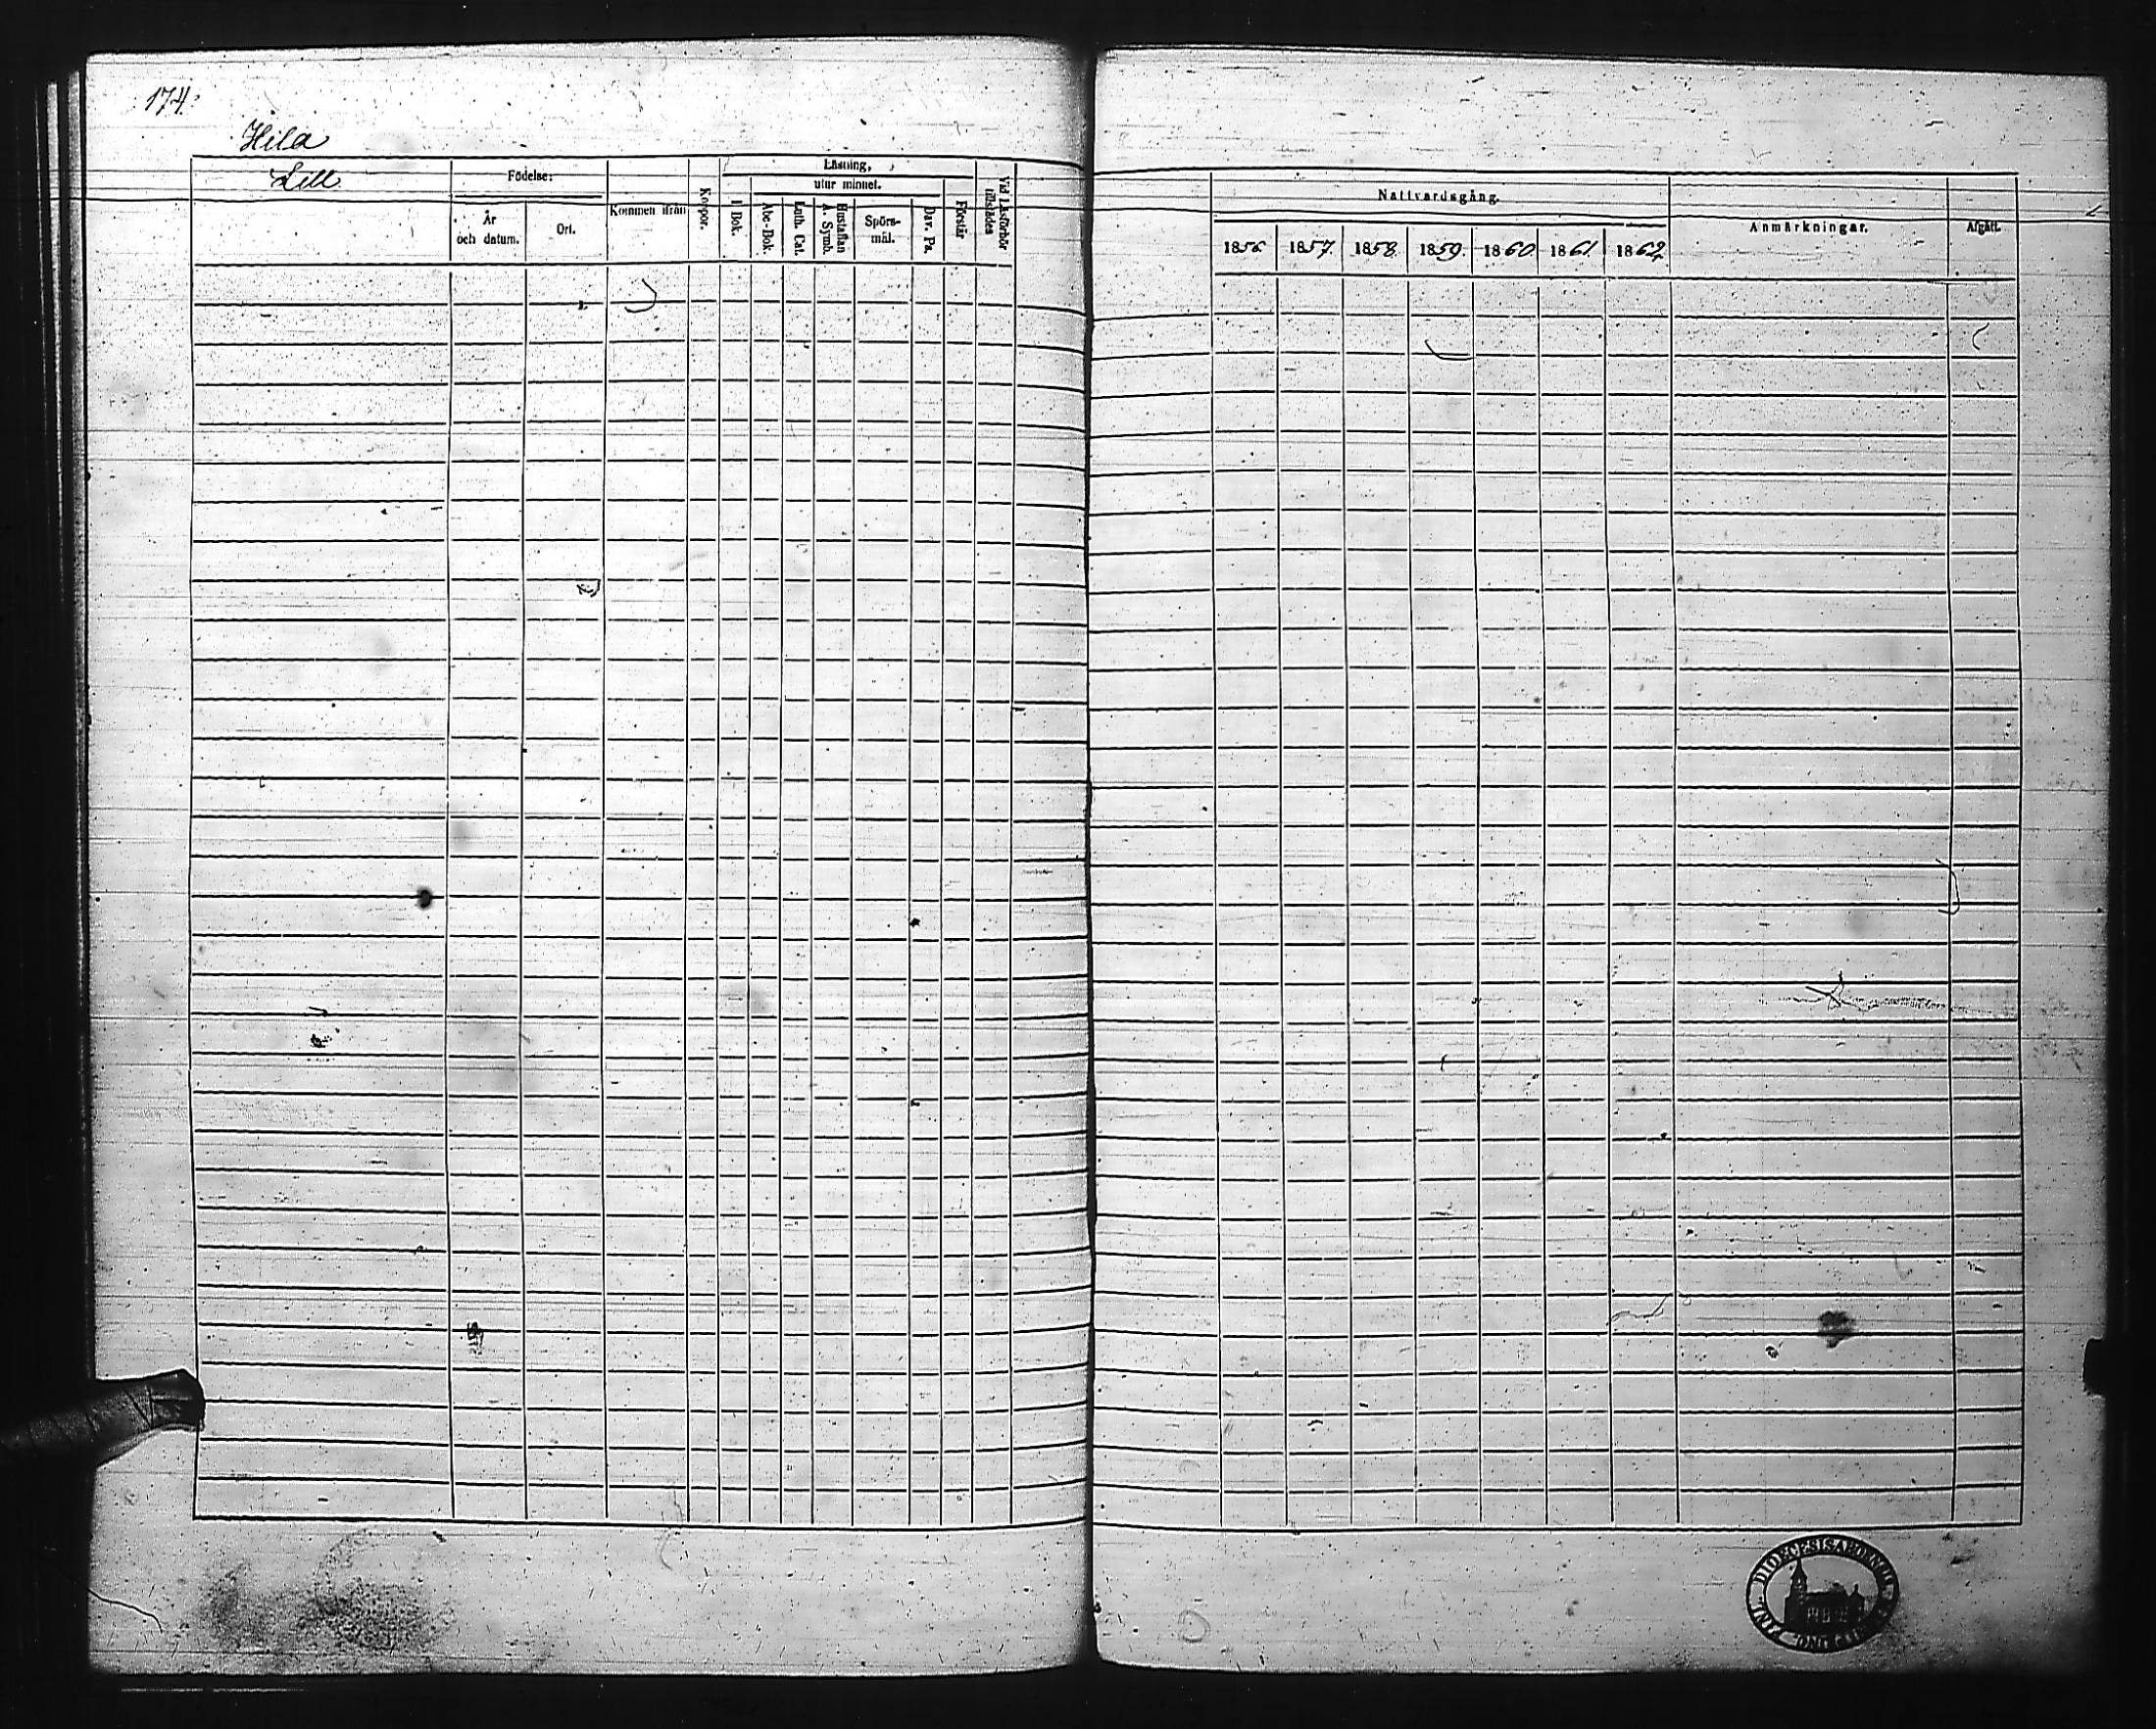 174.
Hila
Lill
Födelse:
År
och datum.
Ort.
Kommen ifrån
Koppor.
Läsning,
utur minnet.
I Bok.
Abc-Bok.
Luth. Cat.
Hustaflan
A. Symb.
Spörs-
mål.
Dav. Ps.
Förstår
Vid Läsförhör
tillstädes
Nattvardsgång.
1856. 1857. 1858. 1859. 1860. 1861. 1862.
Anmärkningar.
Afgått.